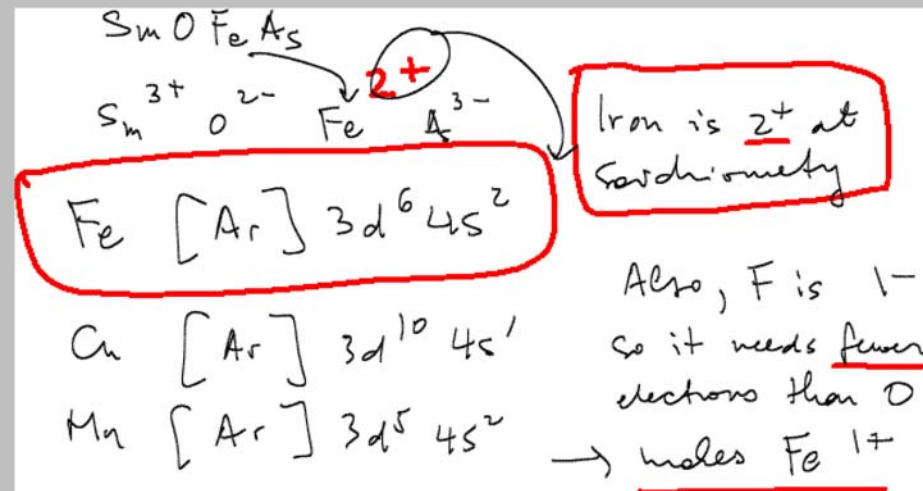 Sm O Fe As
Sm 3+ O 2- Fe 2+ As 3-
Iron is 2+ at
Fe [Ar] 3d6 4s2
Cu [Ar] 3d10 4s1
Mn [Ar] 3d5 4s2
Also, F is 1-
so it needs fewer
electrons than O
→ makes Fe 1+